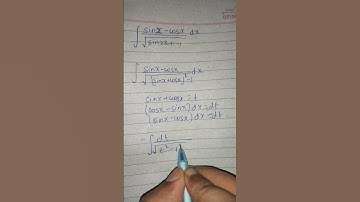 ∫ sinx-cosx / √sin2x+1-1 dx
∫ sinx-cosx / √(sinx+cosx)²-1 dx
sinx+cosx=t
(cosx-sinx)dx=dt
(sinx-cosx)dx=-dt
-∫ dt / √t²-1